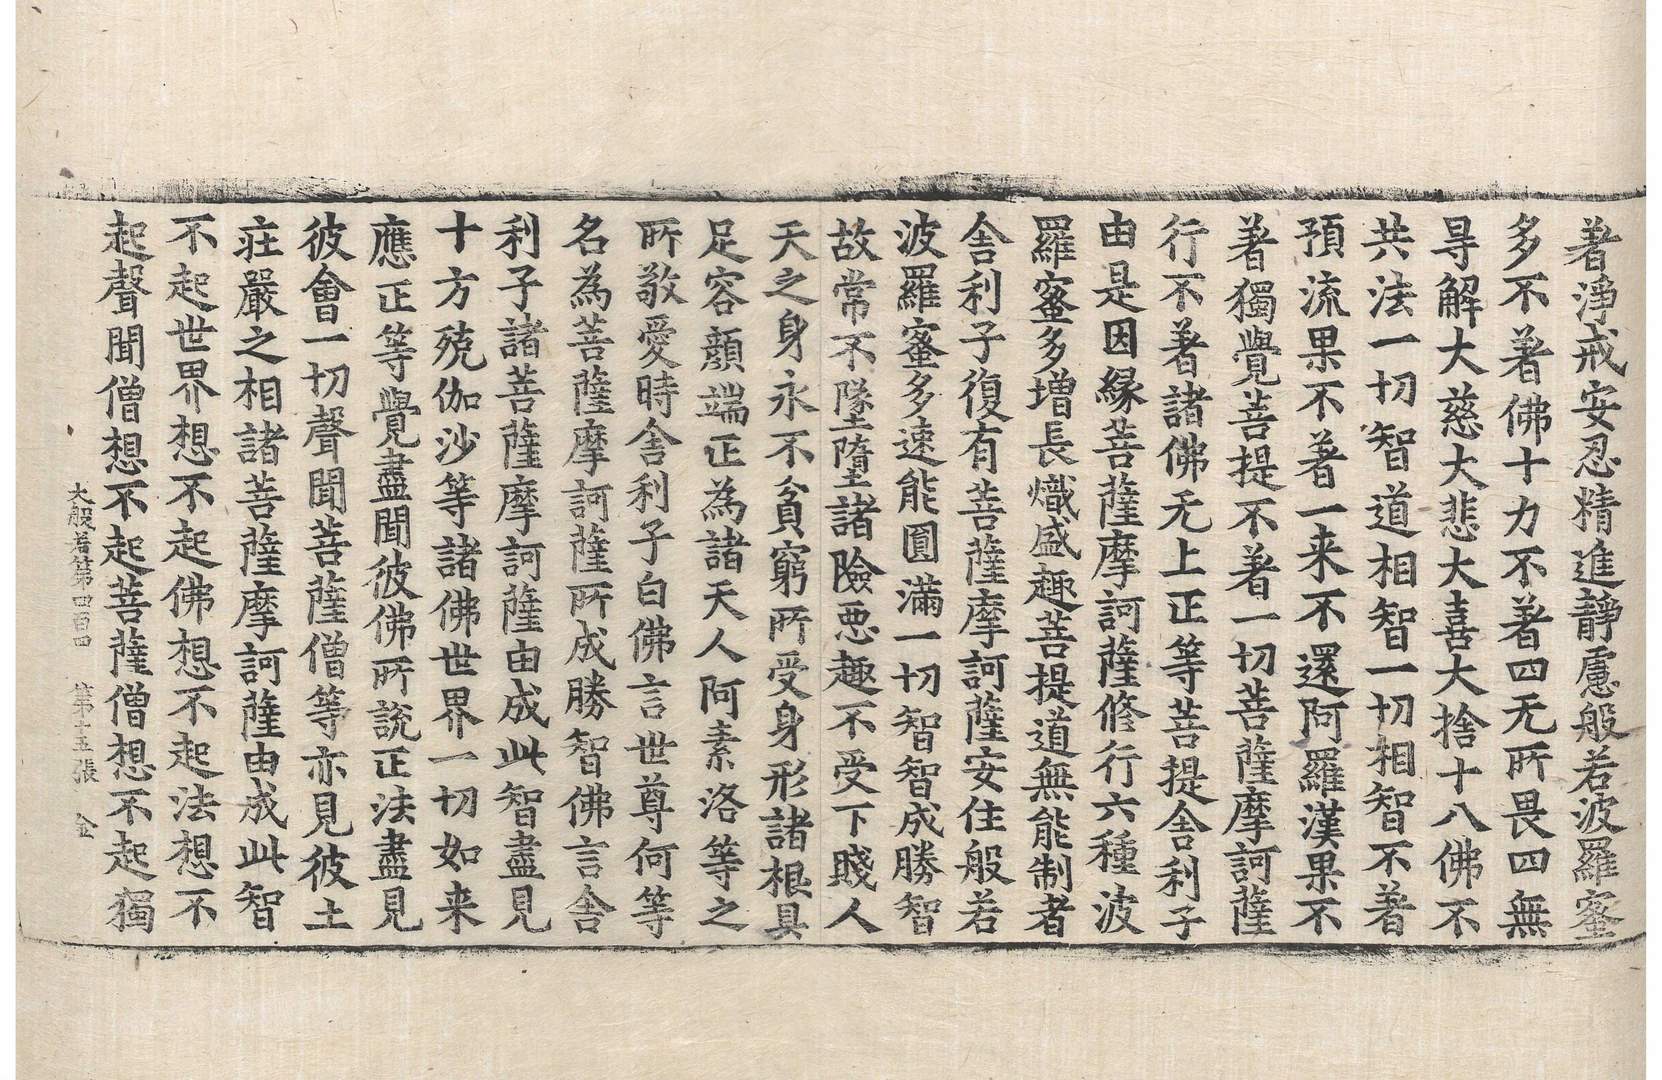 著淨戒安忍精進靜慮般若波羅蜜
多不著佛十力不著四无所畏四無
㝵解大慈大悲大喜大捨十八佛不
共法一切智道相智一切相智不著
預流果不著一来不還阿羅漢果不
著獨覺菩提不著一切菩薩摩訶薩
行不著諸佛无上正等菩提舍利子
由是因縁菩薩摩訶薩修行六種波
羅蜜多增長熾盛趣菩提道無能制者
舍利子復有菩薩摩訶薩安住般若
波羅蜜多速能圓滿一切智智成勝智
故常不墜墮諸險惡趣不受下賤人
天之身永不貧窮所受身形諸根具
足容顔端正為諸天人阿素洛等之
所敬愛時舍利子白佛言世尊何等
名為菩薩摩訶薩所成勝智佛言舍
利子諸菩薩摩訶薩由成此智盡見
十方殑伽沙等諸佛世界一切如来
應正等覺盡聞彼佛所說正法盡見
彼會一切聲聞菩薩僧等亦見彼土
莊嚴之相諸菩薩摩訶薩由成此智
不起世界想不起佛想不起法想不
起聲聞僧想不起菩薩僧想不起獨
大般若第四百四 第十五張 金